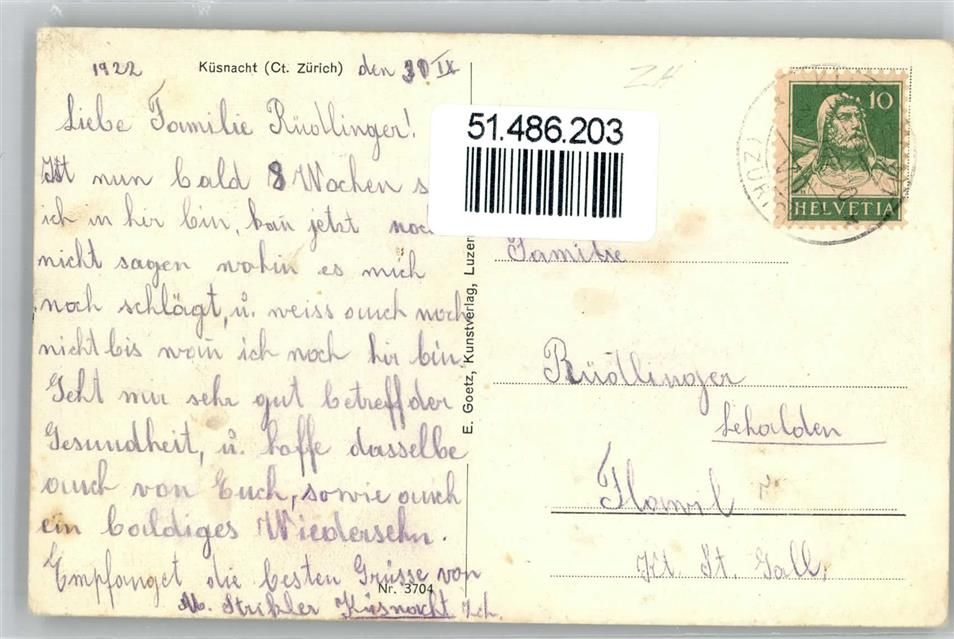 1922 Küsnacht (Ct. Zürich) den 30 IX
Liebe Familie Rüdlinger!
Ist nun bald 8 Wochen
ich in her bin, kan jetzt
nicht sagen wohin es mich
noch schlägt, u. weiss auch noch
nicht bis wan ich noch hir bin,
Geht mir sehr gut betreff der
Gesundheit, u. hoffe dasselbe
auch von Euch, sowie auch
ein baldiges Wiedersehn.
Empfanget die besten Grüsse von
M. Strikler Küsnacht Zch.
Nr. 3704
E. Goetz, Kunstverlag, Luzern
51.486.203
ZH
10
HELVETIA
Familie
Rüdlinger
Flawil
Kt. St. Gall.